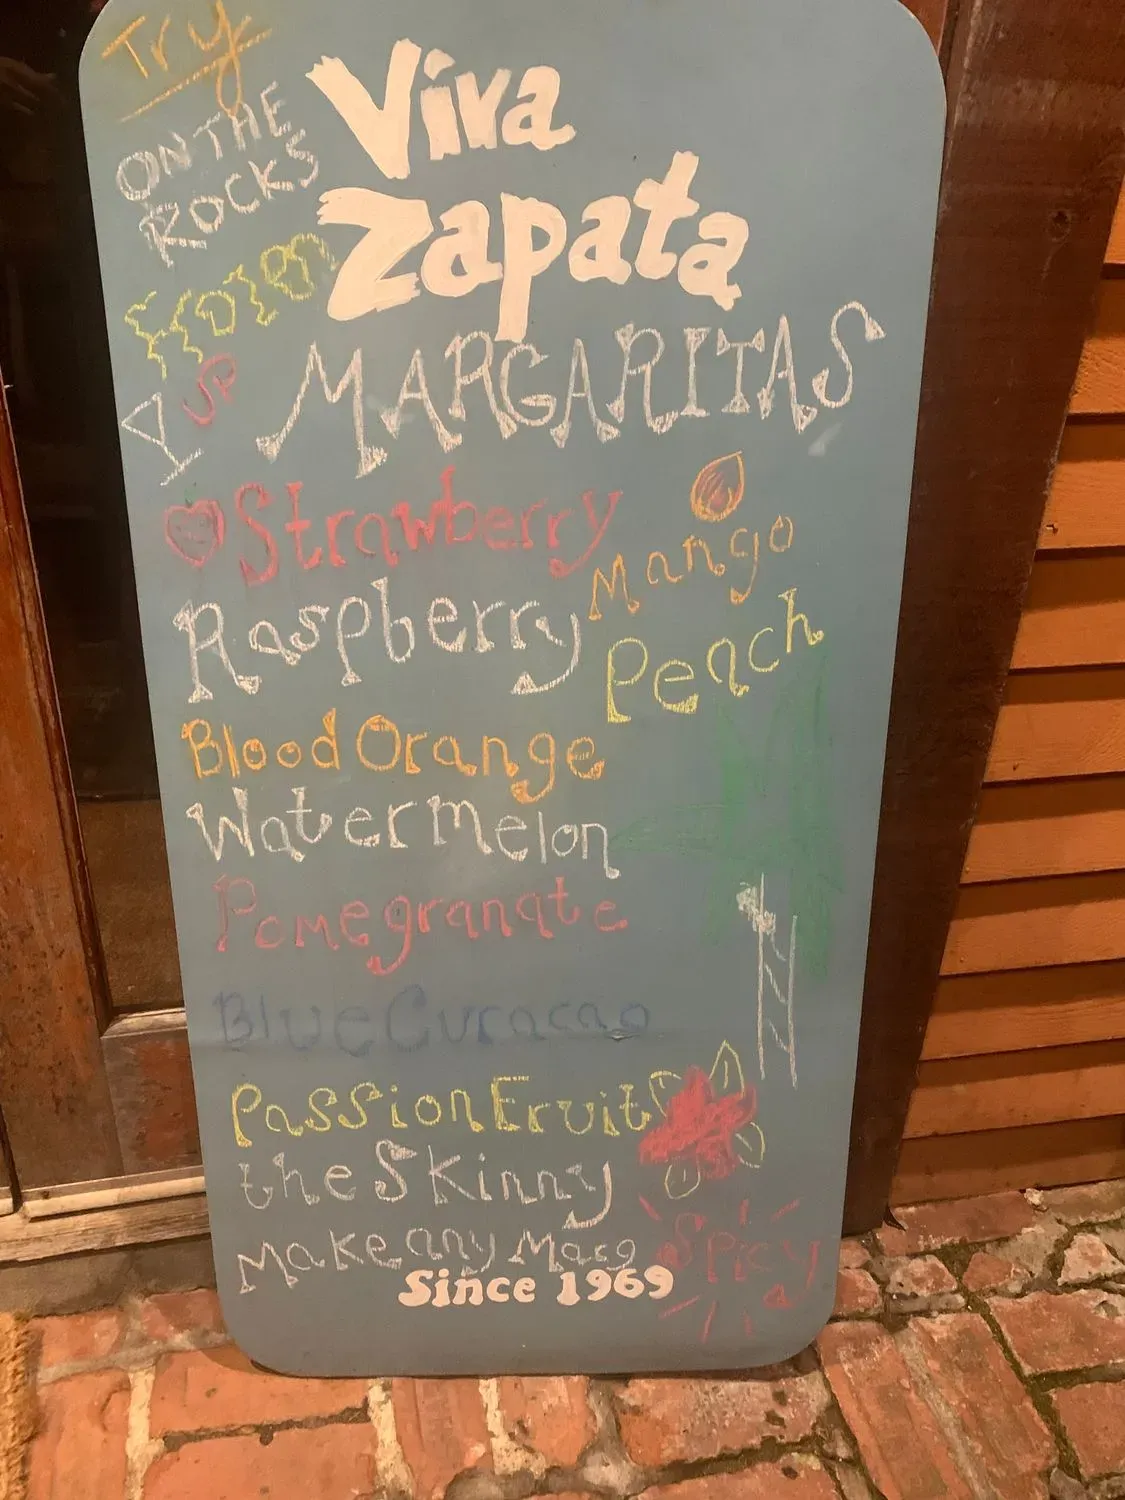 Try
ON THE
ROCKS
Frozen
UP
Viva
Zapata
MARGARITAS
Strawberry
Mango
Raspberry
Peach
Blood Orange
Watermelon
Pomegranate
Blue Curacao
Passion Fruit
the Skinny
Make any Marg Spicy
Since 1969